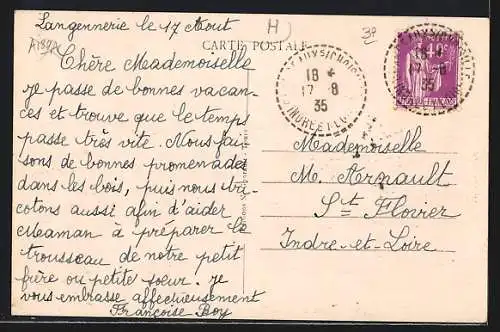 Langennerie le 17 Aout
H
CARTE POSTALE
Chère Mademoiselle
Je passe de bonnes vacan-
ces et trouve que le temps
passe très vite. Nous fai-
sons de bonnes promenades
dans les bois, puis nous tri-
cotons aussi afin d'aider
Maman à préparer le
trousseau de notre petit
frère ou petite soeur. Je
vous embrasse affectueusement
Françoise Boy
18 *
17 - 8
35
INDRE ET L
18
17 - 8
35
Mademoiselle
M. Arnault
St Flovier
Indre-et-Loire